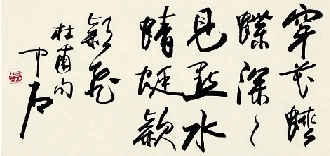 穿花蛺
蝶深〻
見點水
蜻蜓款
款飛
杜甫句
中石